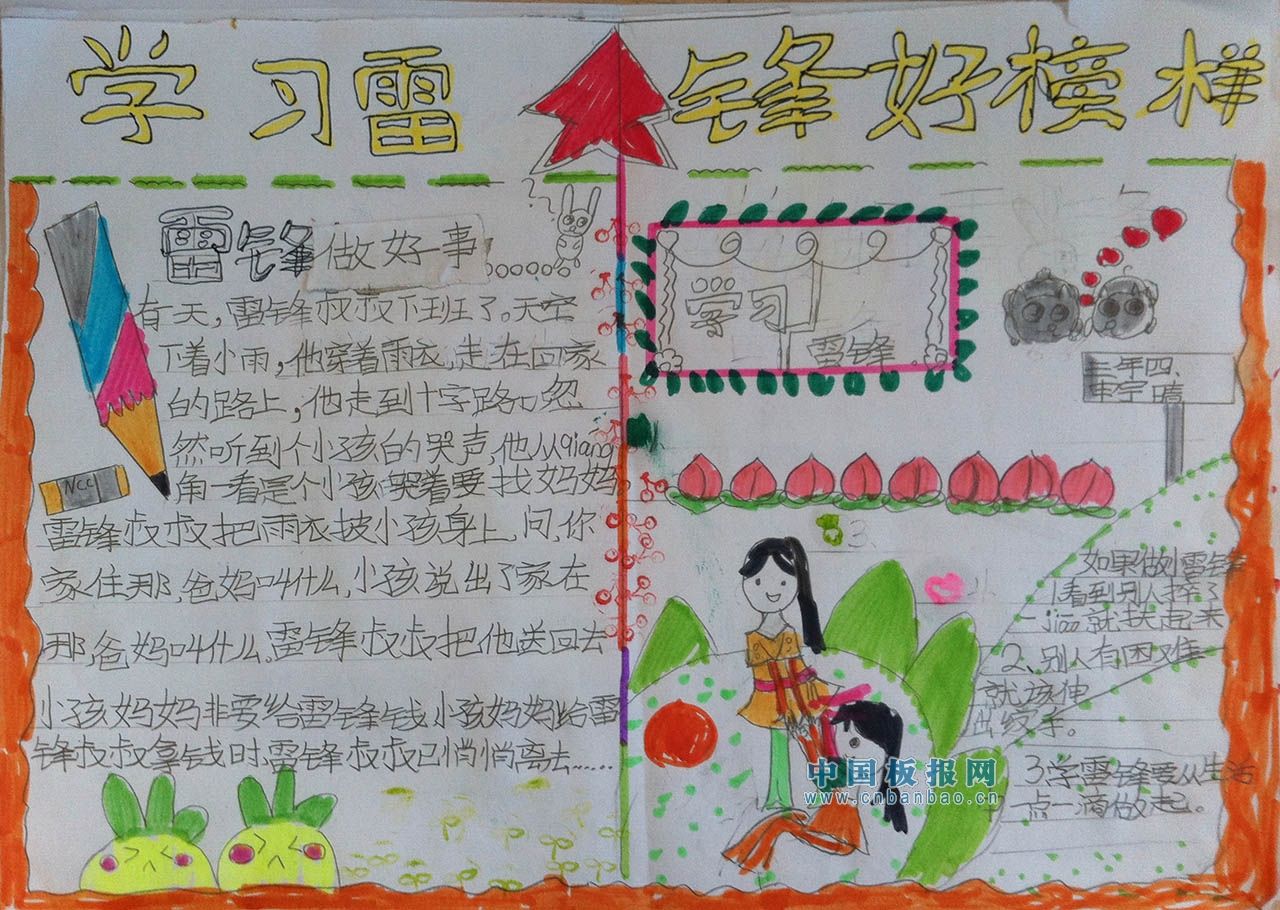 学习雷锋好榜样
雷锋做好事
有天,雷锋叔叔下班了。天空
下着小雨,他穿着雨衣,走在回家
的路上,他走到十字路口,忽
然听到个小孩的哭声,他从qiáng
角一看是个小孩哭着要找妈妈
雷锋叔叔把雨衣披小孩身上,问,你
家住那,爸妈叫什么,小孩说出了家在
那,爸妈叫什么,雷锋叔叔把他送回去
小孩妈妈非要给雷锋钱,小孩妈妈给雷
锋叔叔拿钱时,雷锋叔叔已悄悄离去……
NCCI
学习
雷锋
三年四、
宇晴
3、
如果做小雷锋
1、看到别人摔了
一jiao就扶起来
2、别人有困难
就该伸
出缓手。
3、学雷锋要从生活
一点一滴做起。
中国板报网
www.cnbanbao.cn